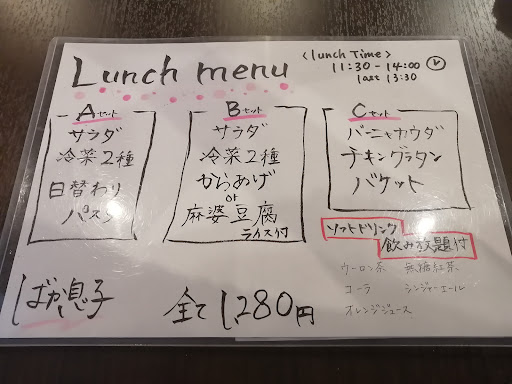 Lunch menu
<lunch Time>
11:30-14:00
last 13:30
Aセット
サラダ
冷菜2種
日替わり
パスタ
Bセット
サラダ
冷菜2種
からあげ
or
麻婆豆腐
ライス付
Cセット
バーニャカウダ
チキングラタン
バケット
ソフトドリンク
飲み放題付
ウーロン茶 無糖紅茶
コーラ ジンジャーエール
オレンジジュース
ばか息子
全て1,280円